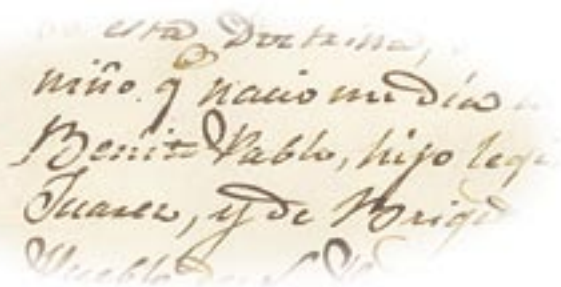 esta Doctrina,
niño. q nacio un dia
Benito Pablo, hijo legi
Juarez, y de Brigid
Pueblo de